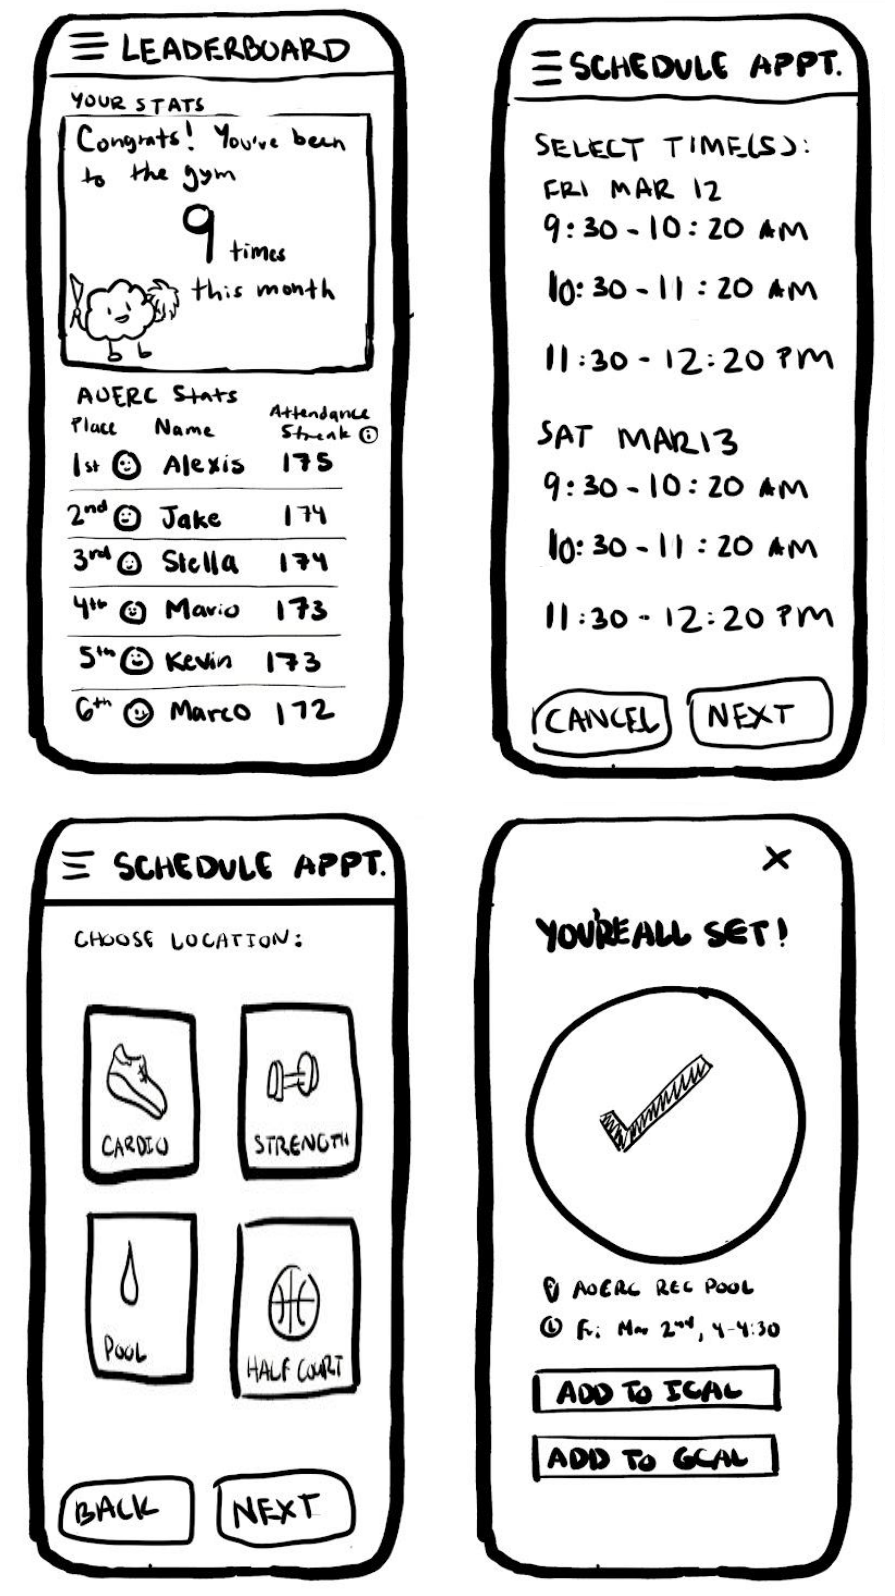 LEADERBOARD
YOUR STATS
Congrats! You've been
to the gym
9 times
this month
AOERC Stats
Place Name Attendance Streak
1st Alexis 175
2nd Jake 174
3rd Stella 174
4th Mario 173
5th Kevin 173
6th Marco 172
SCHEDULE APPT.
SELECT TIME(S):
FRI MAR 12
9:30-10:20 AM
10:30-11:20 AM
11:30-12:20 PM
SAT MAR 13
9:30-10:20 AM
10:30-11:20 AM
11:30-12:20 PM
CANCEL NEXT
SCHEDULE APPT.
CHOOSE LOCATION:
CARDIO STRENGTH
POOL HALF COURT
BACK NEXT
YOU'RE ALL SET!
AOERC REC POOL
Fri Mar 2nd, 4-4:30
ADD TO ICAL
ADD TO GCAL